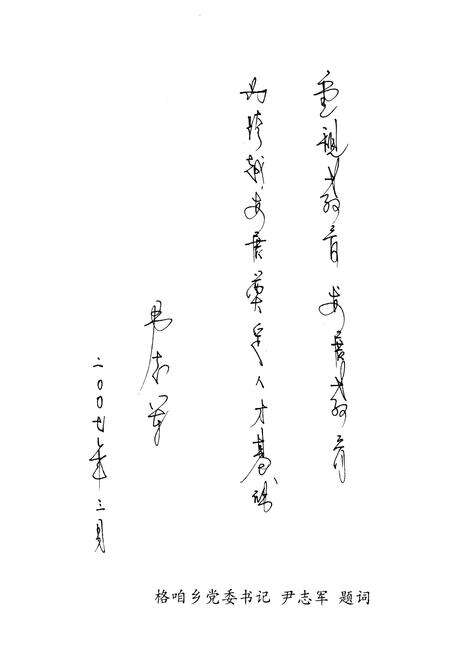 重视教育 发展教育
为跨越发展奠定人才基础
尹志军
二00七年三月
格咱乡党委书记 尹志军 题词